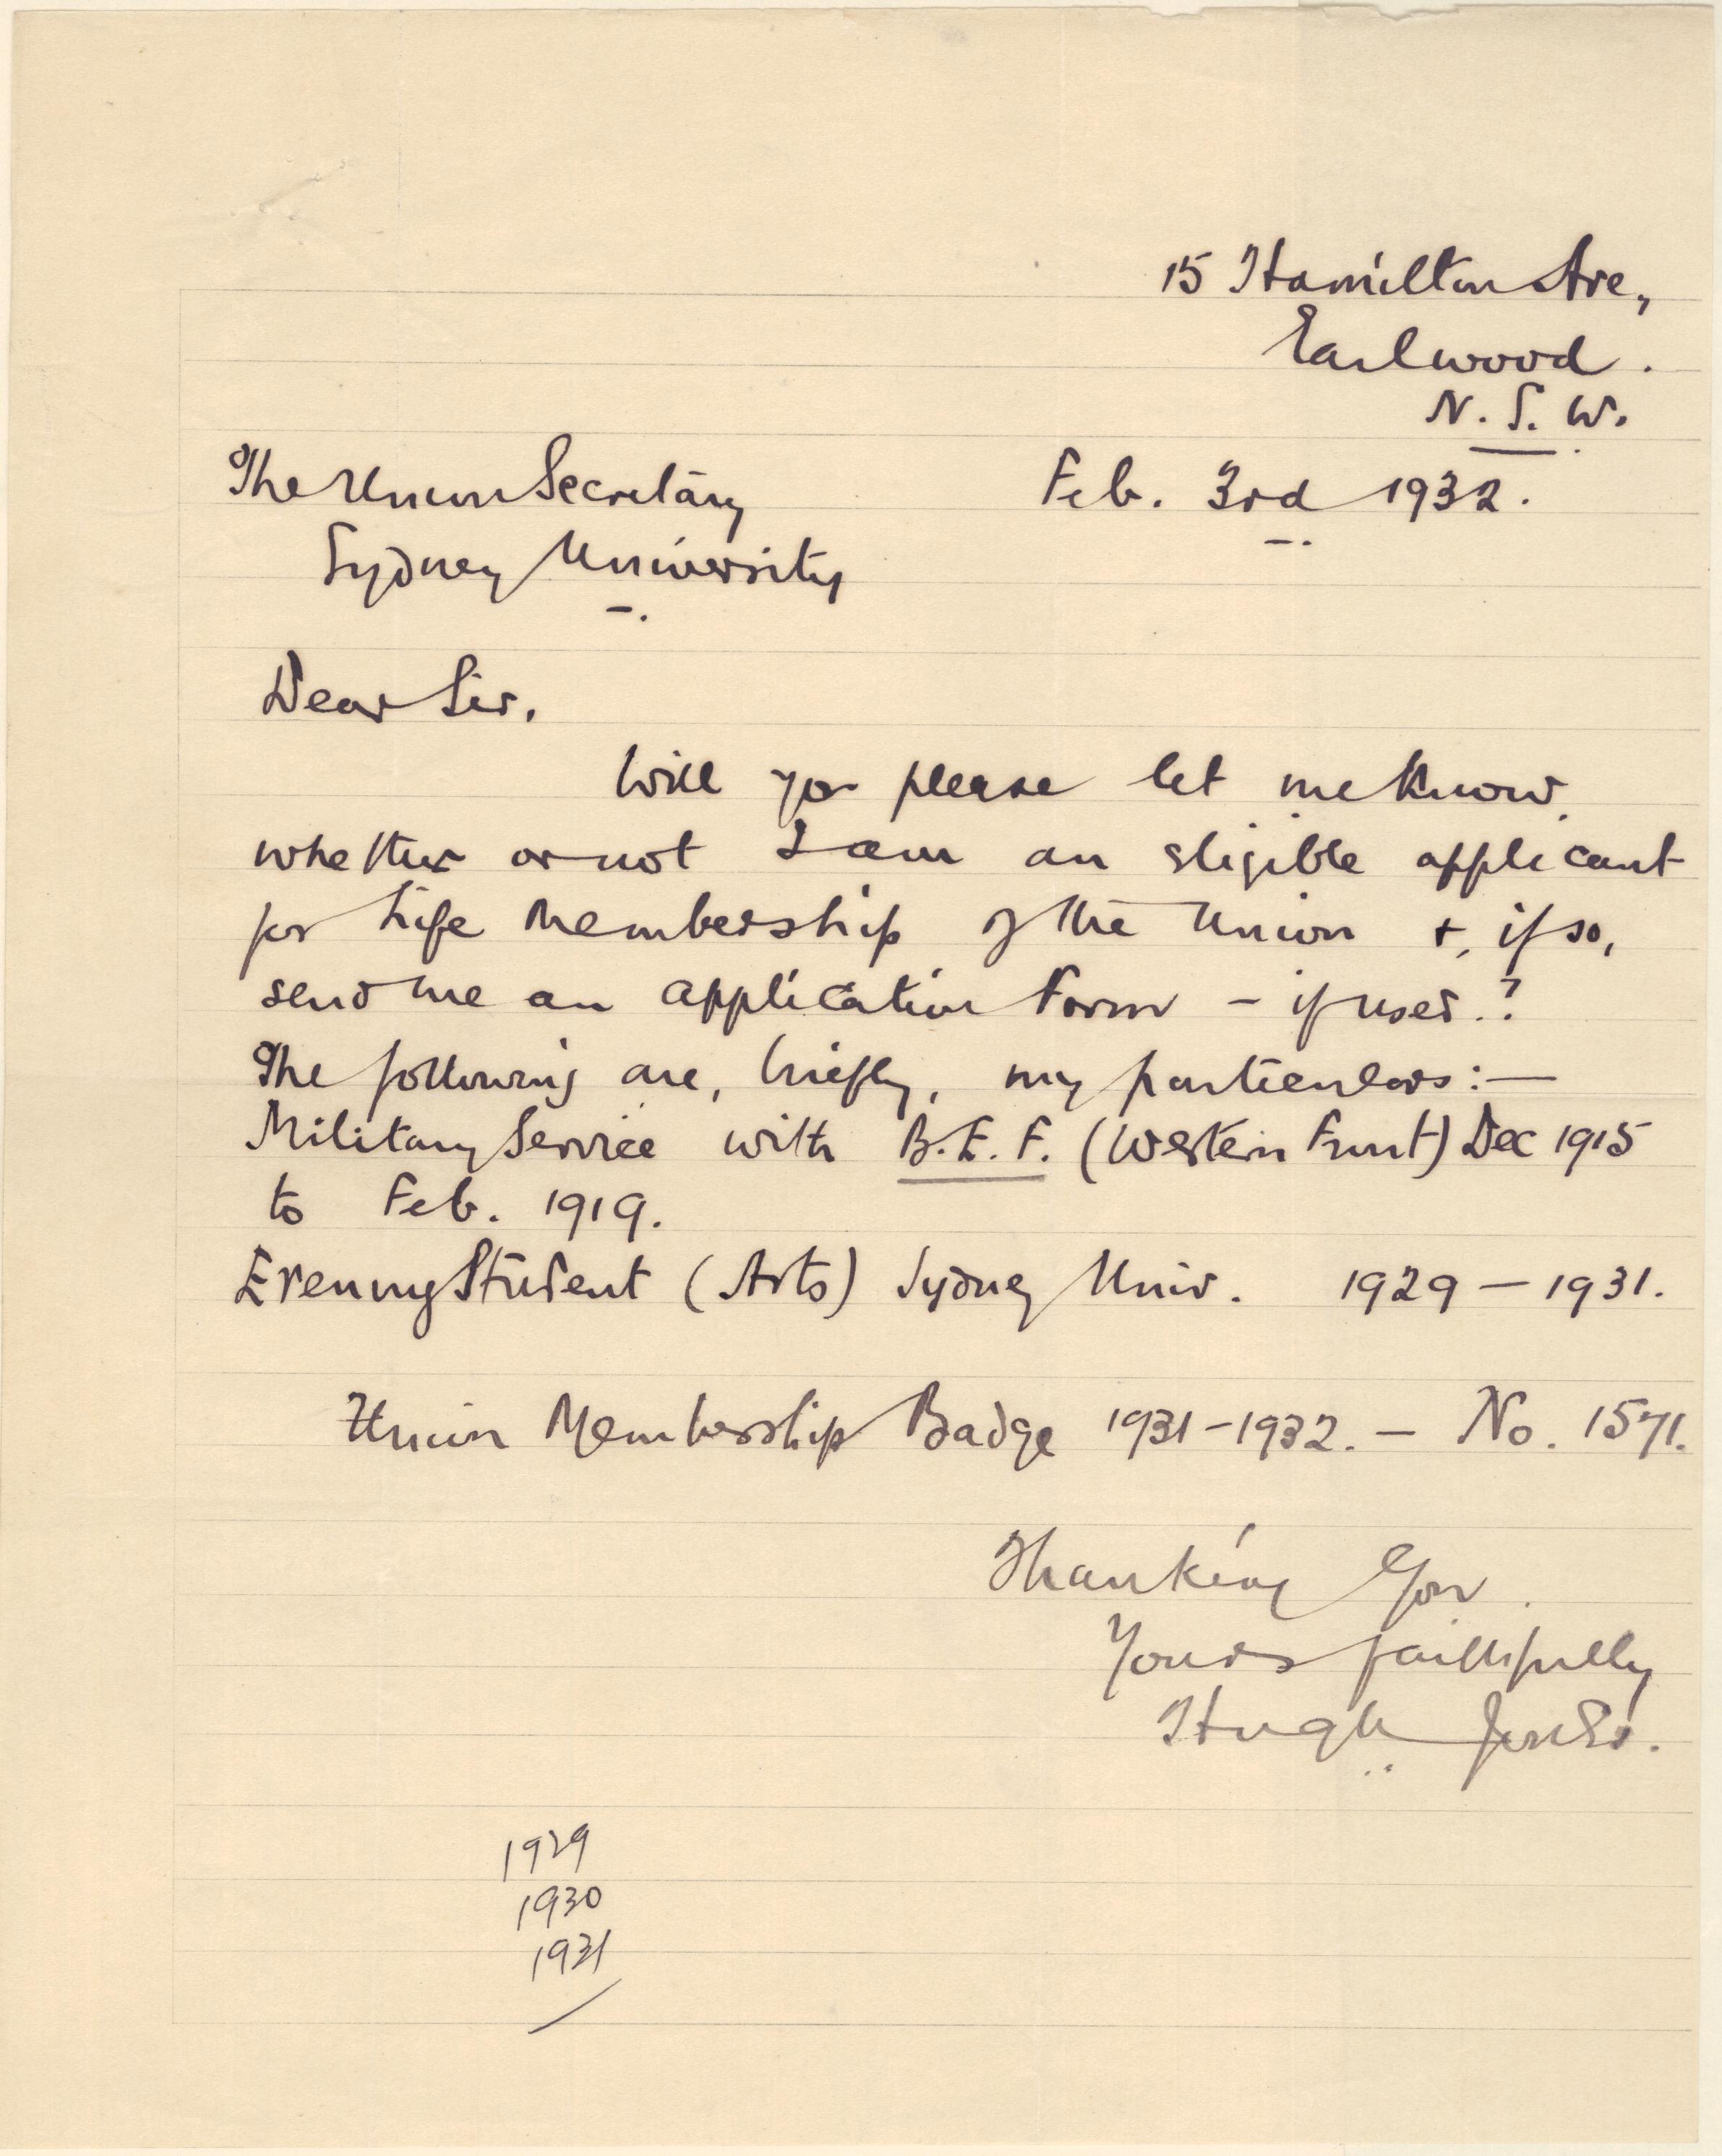 15 Hamilton Ave,
Earlwood.
N. S. W.
The Union Secretary
Feb. 3rd 1932.
Sydney University
Dear Sir,
Will you please let me know
whether or not I am an eligible applicant
for Life Membership of the Union +, if so,
send me an application Form - if used.?
The following are, briefly, my particulars:—
Military Service with B.E.F. (Western Front) Dec 1915
to Feb. 1919.
Evening Student (Arts) Sydney Univ. 1929 — 1931.
Union Membership Badge 1931-1932. — No. 1571.
Thanking You.
Yours faithfully
Hugh Jones.
1929
1930
1931